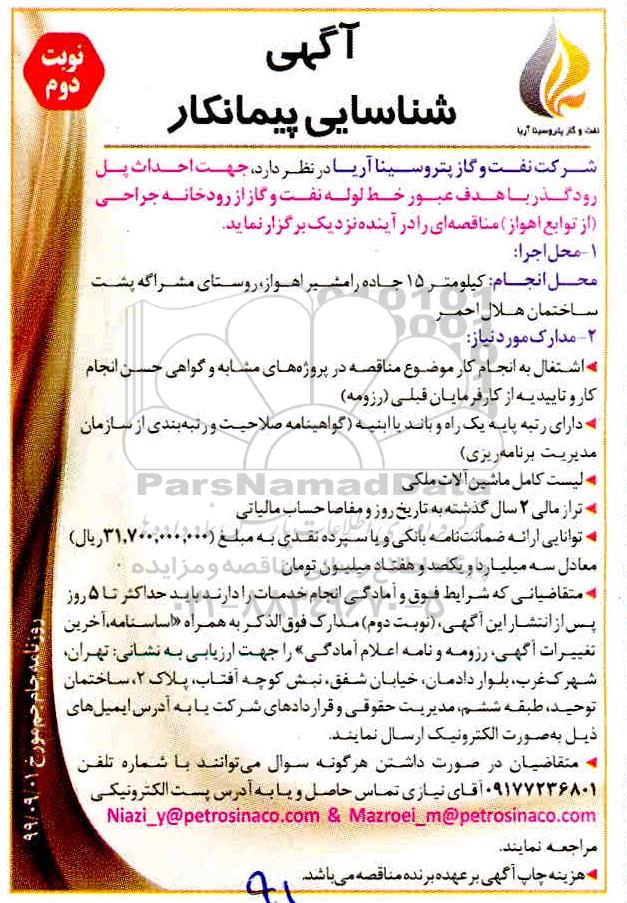 آگهی
شناسایی پیمانکار
نوبت
دوم
نفت و گاز پتروسینا آریا
شرکت نفت و گاز پتروسینا آریا در نظر دارد، جهت احداث پل
رودگذر با هدف عبور خط لوله نفت و گاز از رودخانه جراحی
(از توابع اهواز) مناقصه‌ای را در آینده نزدیک برگزار نماید.
۱-محل اجرا:
محل انجام: کیلومتر ۱۵ جاده رامشیر اهواز، روستای مشراگه پشت
ساختمان هلال احمر
۲- مدارک مورد نیاز:
◄اشتغال به انجام کار موضوع مناقصه در پروژه‌های مشابه و گواهی حسن انجام
کار و تاییدیه از کارفرمایان قبلی (رزومه)
◄دارای رتبه پایه یک راه و باند یا ابنیه (گواهینامه صلاحیت و رتبه‌بندی از سازمان
مدیریت برنامه‌ریزی)
◄لیست کامل ماشین آلات ملکی
◄تراز مالی ۲ سال گذشته به تاریخ روز و مفاصا حساب مالیاتی
◄توانایی ارائه ضمانت‌نامه بانکی و یا سپرده نقدی به مبلغ (۳۱,۷۰۰,۰۰۰,۰۰۰ ریال)
معادل سه میلیارد و یکصد و هفتاد میلیون تومان
◄متقاضیانی که شرایط فوق و آمادگی انجام خدمات را دارند باید حداکثر تا ۵ روز
پس از انتشار این آگهی، (نوبت دوم) مدارک فوق‌الذکر به همراه «اساسنامه، آخرین
تغییرات آگهی، رزومه و نامه اعلام آمادگی» را جهت ارزیابی به نشانی: تهران،
شهرک غرب، بلوار دادمان، خیابان شفق، نبش کوچه آفتاب، پلاک ۲، ساختمان
توحید، طبقه ششم، مدیریت حقوقی و قراردادهای شرکت یا به آدرس ایمیل‌های
ذیل به صورت الکترونیک ارسال نمایند.
◄ متقاضیان در صورت داشتن هرگونه سوال می‌توانند با شماره تلفن
۰۹۱۷۷۲۳۶۸۰۱ آقای نیازی تماس حاصل و یا به آدرس پست الکترونیکی
Niazi_y@petrosinaco.com & Mazroei_m@petrosinaco.com
مراجعه نمایند.
◄هزینه چاپ آگهی بر عهده برنده مناقصه می‌باشد.
روزنامه جام جم مورخ ۹۹/۰۹/۰۱
ParsNamadData